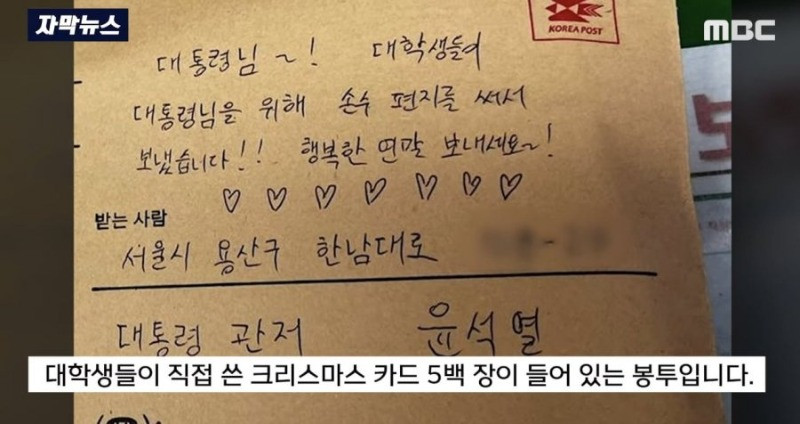 자막뉴스
KOREA POST
MBC
대통령님~! 대학생들이
대통령님을 위해 손수 편지를 써서
보냈습니다!! 행복한 연말 보내세요~!
♡ ♡ ♡ ♡ ♡ ♡ ♡
받는 사람
서울시 용산구 한남대로
대통령 관저 윤석열
대학생들이 직접 쓴 크리스마스 카드 5백 장이 들어 있는 봉투입니다.